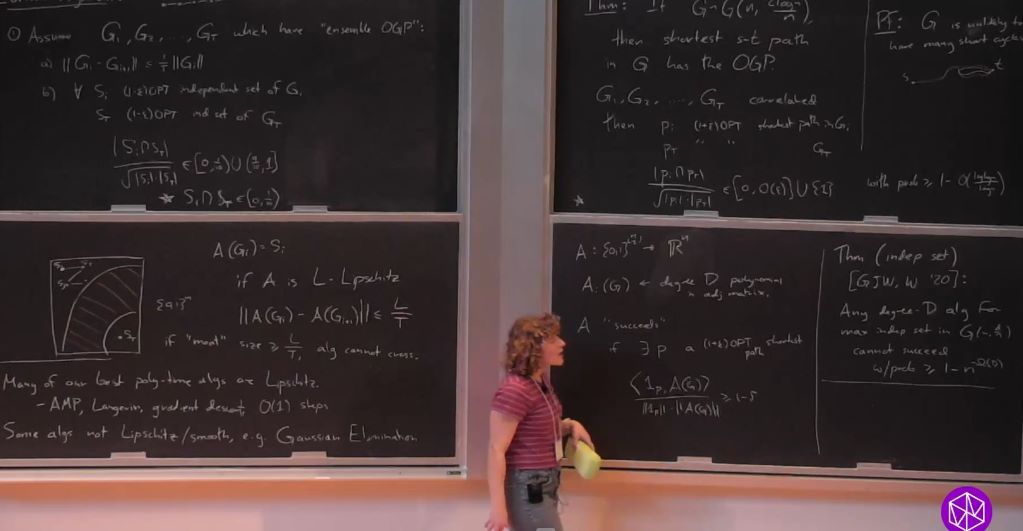 ① Assume G₁, G₂, ..., G_T which have "ensemble OGP":
a) ||G_i - G_{i+1}|| ≤ 1/T ||G_i||
b) ∀ S_i (1-ε)OPT independent set of G_i
S_T (1-ε)OPT ind set of G_T
|S_i ∩ S_T| / √(|S_i|·|S_T|)
A(G_i) = S_i
if A is L-Lipschitz
||A(G_i) - A(G_{i+1})|| ≤ L/T
if "moat" size ≥ L/T, alg cannot cross.
Many of our best poly-time algs are Lipschitz.
- AMP, Langevin, gradient descent, O(1) steps
Some algs not Lipschitz/smooth, e.g. Gaussian Elimination
Thm: If G ~ G(n, c log n / n)
then shortest s-t path
in G has the OGP.
G₁, G₂, ..., G_T correlated
then p_i (1+ε)OPT shortest path in G_i
p_T " " G_T
|p_i ∩ p_T| / √(|p_i|·|p_T|) ∈ [0, O(ε)] ∪ {1}
Pf: G is unlikely to
have many short cycles
s t
with prob ≥ 1 - O(
A: {0,1} → ℝⁿ
A_i(G) ← degree D polynomial
in adj matrix.
A "succeeds"
if ∃ p a (1+ε)OPT shortest
path
⟨1_p, A(G)⟩ / ||1_p||·||A(G)|| ≥ 1-δ
Thm (indep set)
[GJW, W '20]:
Any degree-D alg for
max indep set in G(n, d/n)
cannot succeed
w/prob ≥ 1 - n^{-Ω(D)}